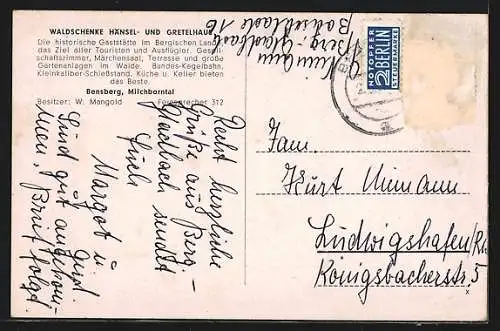 WALDSCHENKE HÄNSEL- UND GRETELHAUS
Die historische Gaststätte im Bergischen Land,
das Ziel aller Touristen und Ausflügler. Gesell-
schaftszimmer, Märchensaal, Terrasse und große
Gartenanlagen im Walde. Bandes-Kegelbahn,
Kleinkaliber-Schießstand. Küche u. Keller bieten
das Beste.
Bensberg, Milchborntal
Besitzer: W. Mangold Fernsprecher 312
Berg. Gladbach
NOTOPFER
2 BERLIN
STEUERMARKE
Recht herzliche
Grüße aus Berg.-
Gladbach sendet
Euch
Margot u.
Gerd.
Sind gut angekom-
men, Brief folgt.
Fam.
Kurt
Ludwigshafen/Rh.
Königsbacherstr. 5